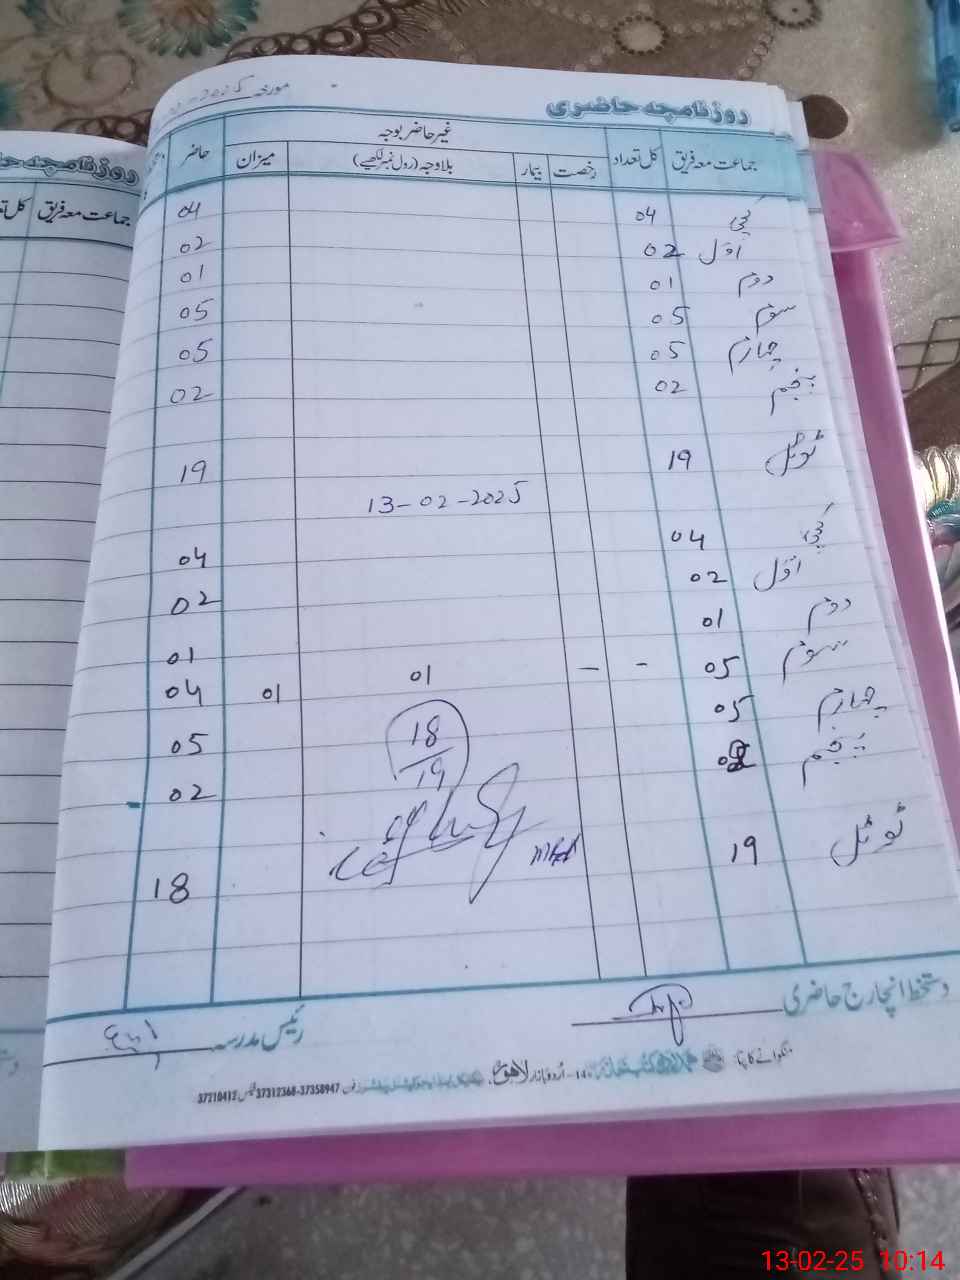 روزنامچہ حاضری
مورخہ
جماعت معہ فریق کل تعداد غیر حاضر بوجہ حاضر
رخصت بیمار بلاوجہ (رول نمبر لکھیے) میزان
کچی 04 04
اول 02 02
دوم 01 01
سوم 05 05
چہارم 05 05
پنجم 02 02
ٹوٹل 19 19
13-02-2025
کچی 04 04
اول 02 02
دوم 01 01
سوم 05 - - 01 01 04
چہارم 05 05
پنجم 02
18
19
ٹوٹل 19 18
دستخط انچارج حاضری
رئیس مدرسہ
منگوانے کا پتہ:
اردو بازار لاہور
فون 37312368-37358947 فیکس 37210412
روزنامچہ
جماعت معہ فریق
13-02-25 10:14